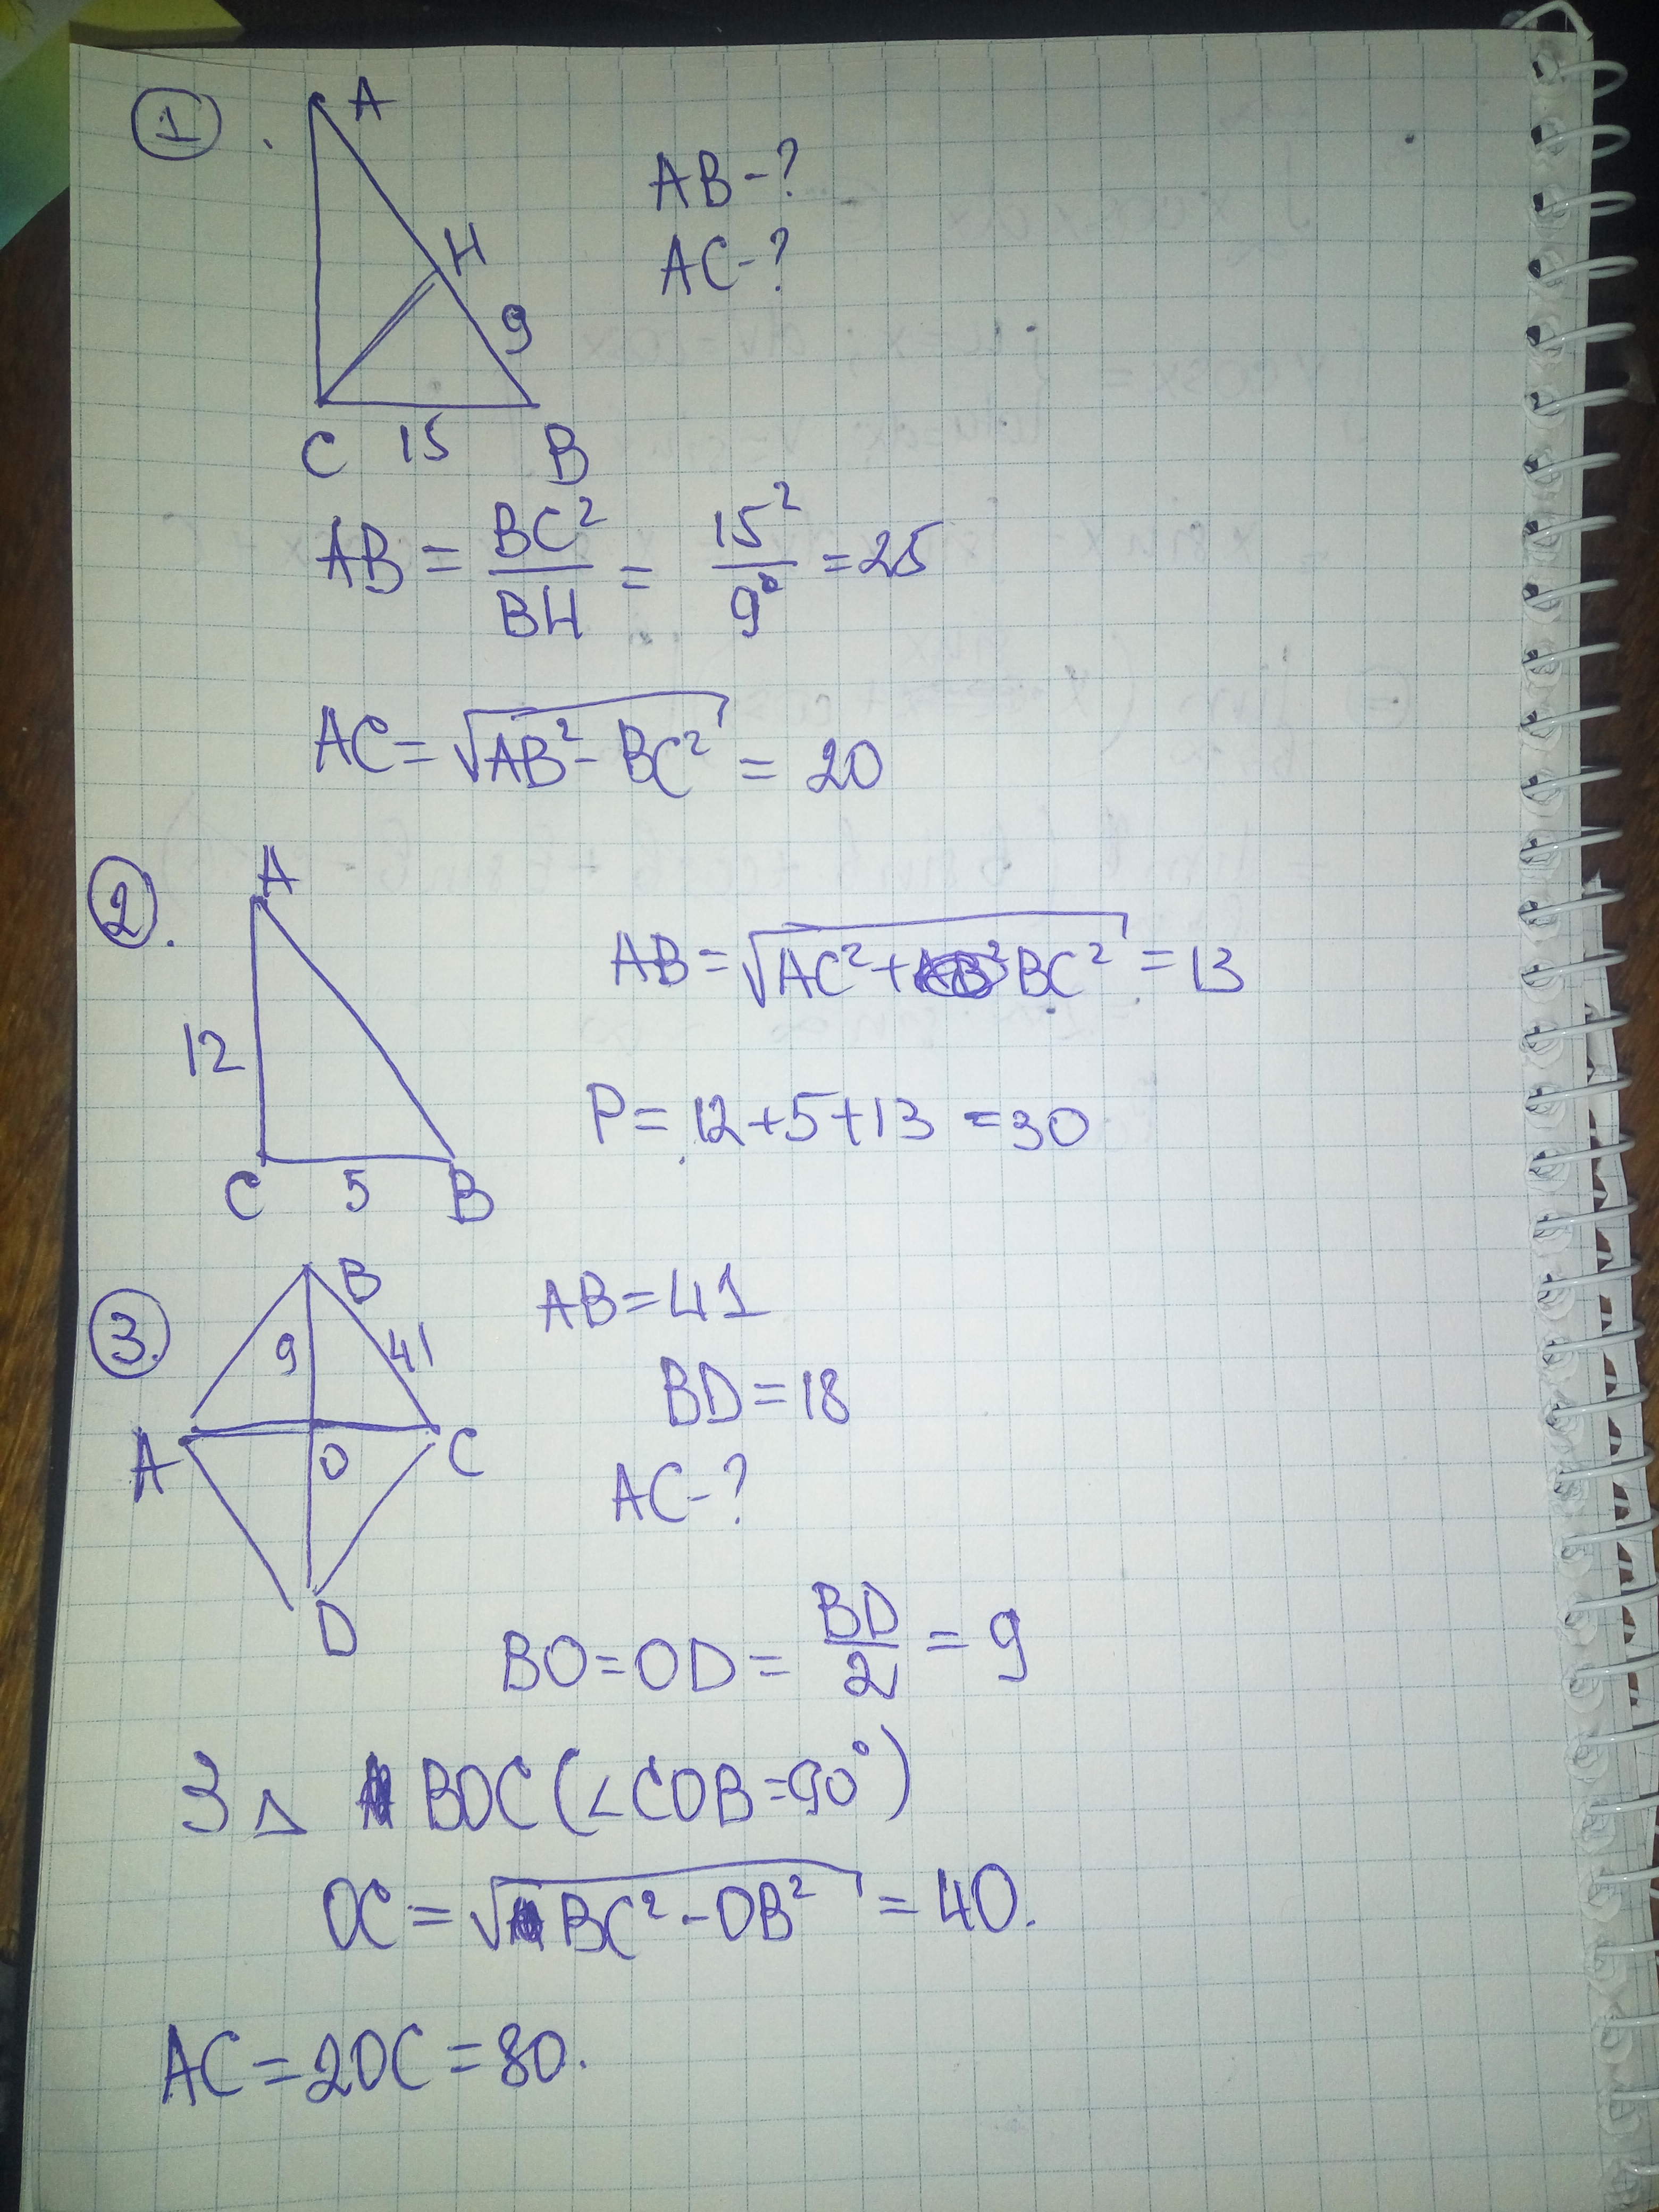 1.
A
H
9
C 15 B
AB-?
AC-?
AB = BC²/BH = 15²/9 = 25
AC = √(AB² - BC²) = 20
2.
A
12
C 5 B
AB = √(AC² + BC²) = 13
P = 12+5+13 = 30
3.
B
9 41
A O C
D
AB = 41
BD = 18
AC-?
BO = OD = BD/2 = 9
З △ BOC (∠COB = 90°)
OC = √(BC² - OB²) = 40.
AC = 2OC = 80.